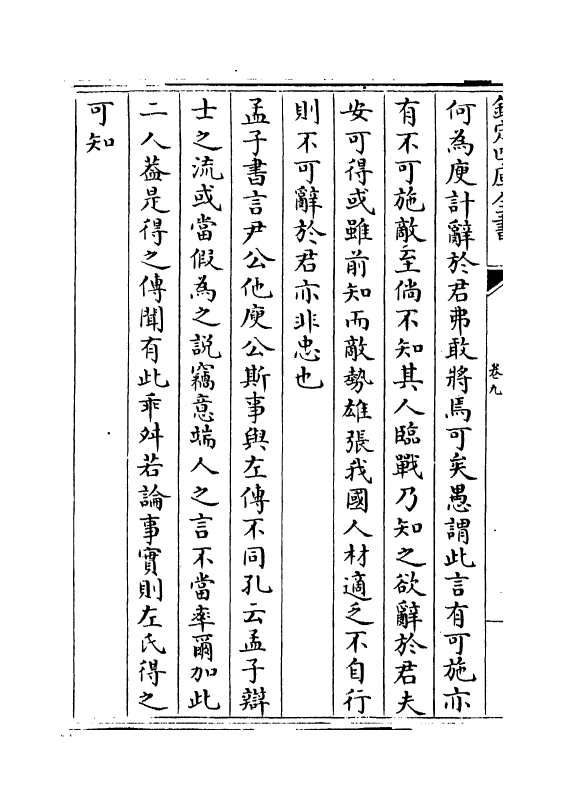 欽定四庫全書
卷九
何為庾計辭於君弗敢將焉可矣愚謂此言有可施亦
有不可施敵至倘不知其人臨戰乃知之欲辭於君夫
安可得或雖前知而敵勢雄張我國人材適乏不自行
則不可辭於君亦非忠也
孟子書言尹公他庾公斯事與左傳不同孔云孟子辯
士之流或當假為之説竊意端人之言不當率爾加此
二人葢是得之傳聞有此乖舛若論事實則左氏得之
可知